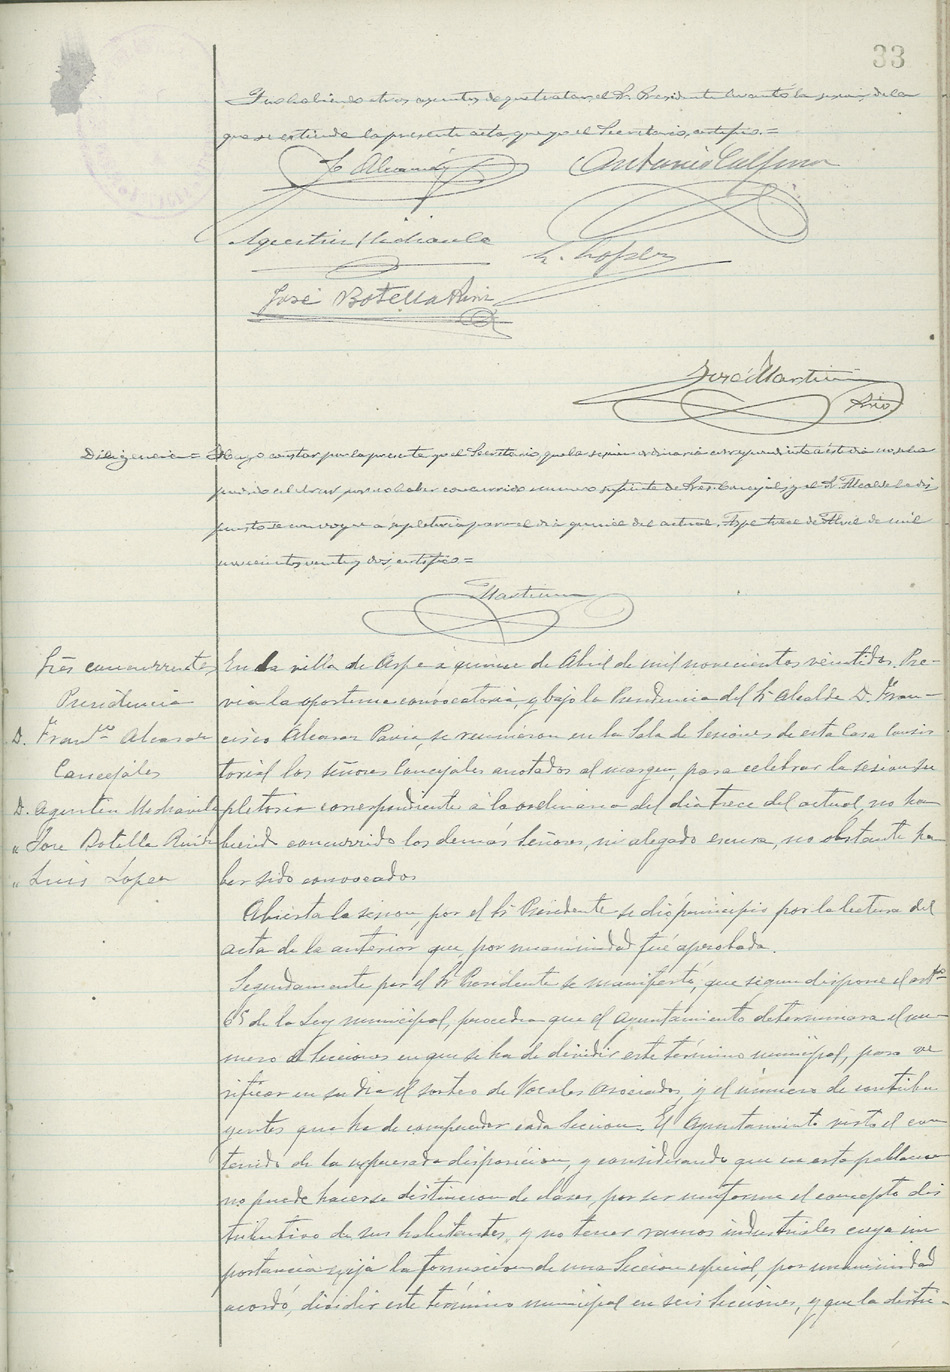 33
Y no habiendo otros asuntos de que tratar, el Sr. Presidente levantó la sesion, de la
que se extiende la presente acta, que yo el Secretario, certifico.=
F. Alcaraz
Antonio Calpena
Agustin Mira
L. López
José Botella Ruiz
José Martinez
Srio
Diligencia = Hago constar por la presente yo el Secretario que la sesion ordinaria correspondiente á este dia no se ha
podido celebrar, por no haber concurrido numero suficiente de Sres. Concejales, y el Sr. Alcalde ha dis
puesto se convoque á supletoria para el dia quince del actual. Aspe trece de Abril de mil
novecientos veinte y dos, certifico =
Martinez
Sres concurrentes
Presidencia
D. Franco Alcaraz
Concejales
D. Agustin
" Jose Botella Ruiz
" Luis López
En la villa de Aspe á quince de Abril de mil novecientos veintidos. Pre-
via la oportuna convocatoria y bajo la Presidencia del Sr Alcalde D. Fran-
cisco Alcaraz Pavia, se reunieron en la Sala de Sesiones de esta Casa Consis
torial los señores Concejales anotados al margen, para celebrar la sesion su
pletoria correspondiente á la ordinaria del dia trece del actual, no ha
biendo concurrido los demás señores, ni alegado escusa, no obstante ha
ber sido convocados
Abierta la sesion, por el Sr Presidente se dió principio por la lectura del
acta de la anterior que, por unanimidad fué aprobada.
Seguidamente por el Sr Presidente se manifestó, que segun dispone el artº
65 de la Ley municipal, procedia que el Ayuntamiento determinara el nu-
mero de secciones en que se ha de dividir este término municipal, para ve
rificar en su dia el sorteo de Vocales Asociados, y el número de contribu
yentes que ha de comprender cada seccion. El Ayuntamiento visto el con
tenido de la espresada disposicion, y considerando que en esta poblacion
no puede hacerse distincion de clases, por ser uniforme el concepto dis
tributivo de sus habitantes, y no tener ramos industriales cuya im
portancia exija la formacion de una Seccion especial, por unanimidad
acordó, dividir este término municipal en seis Secciones, y que la distri-